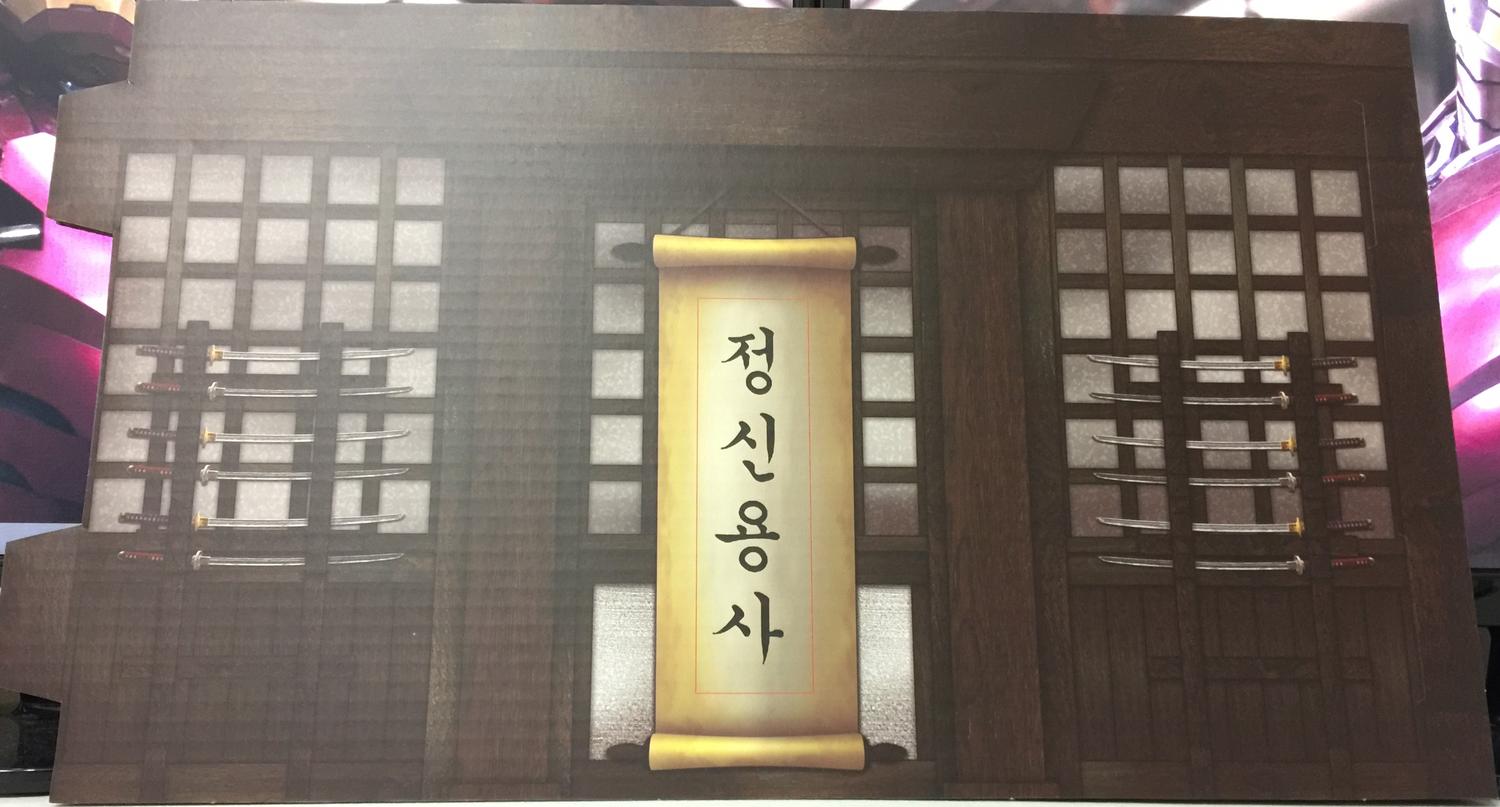 정신용사